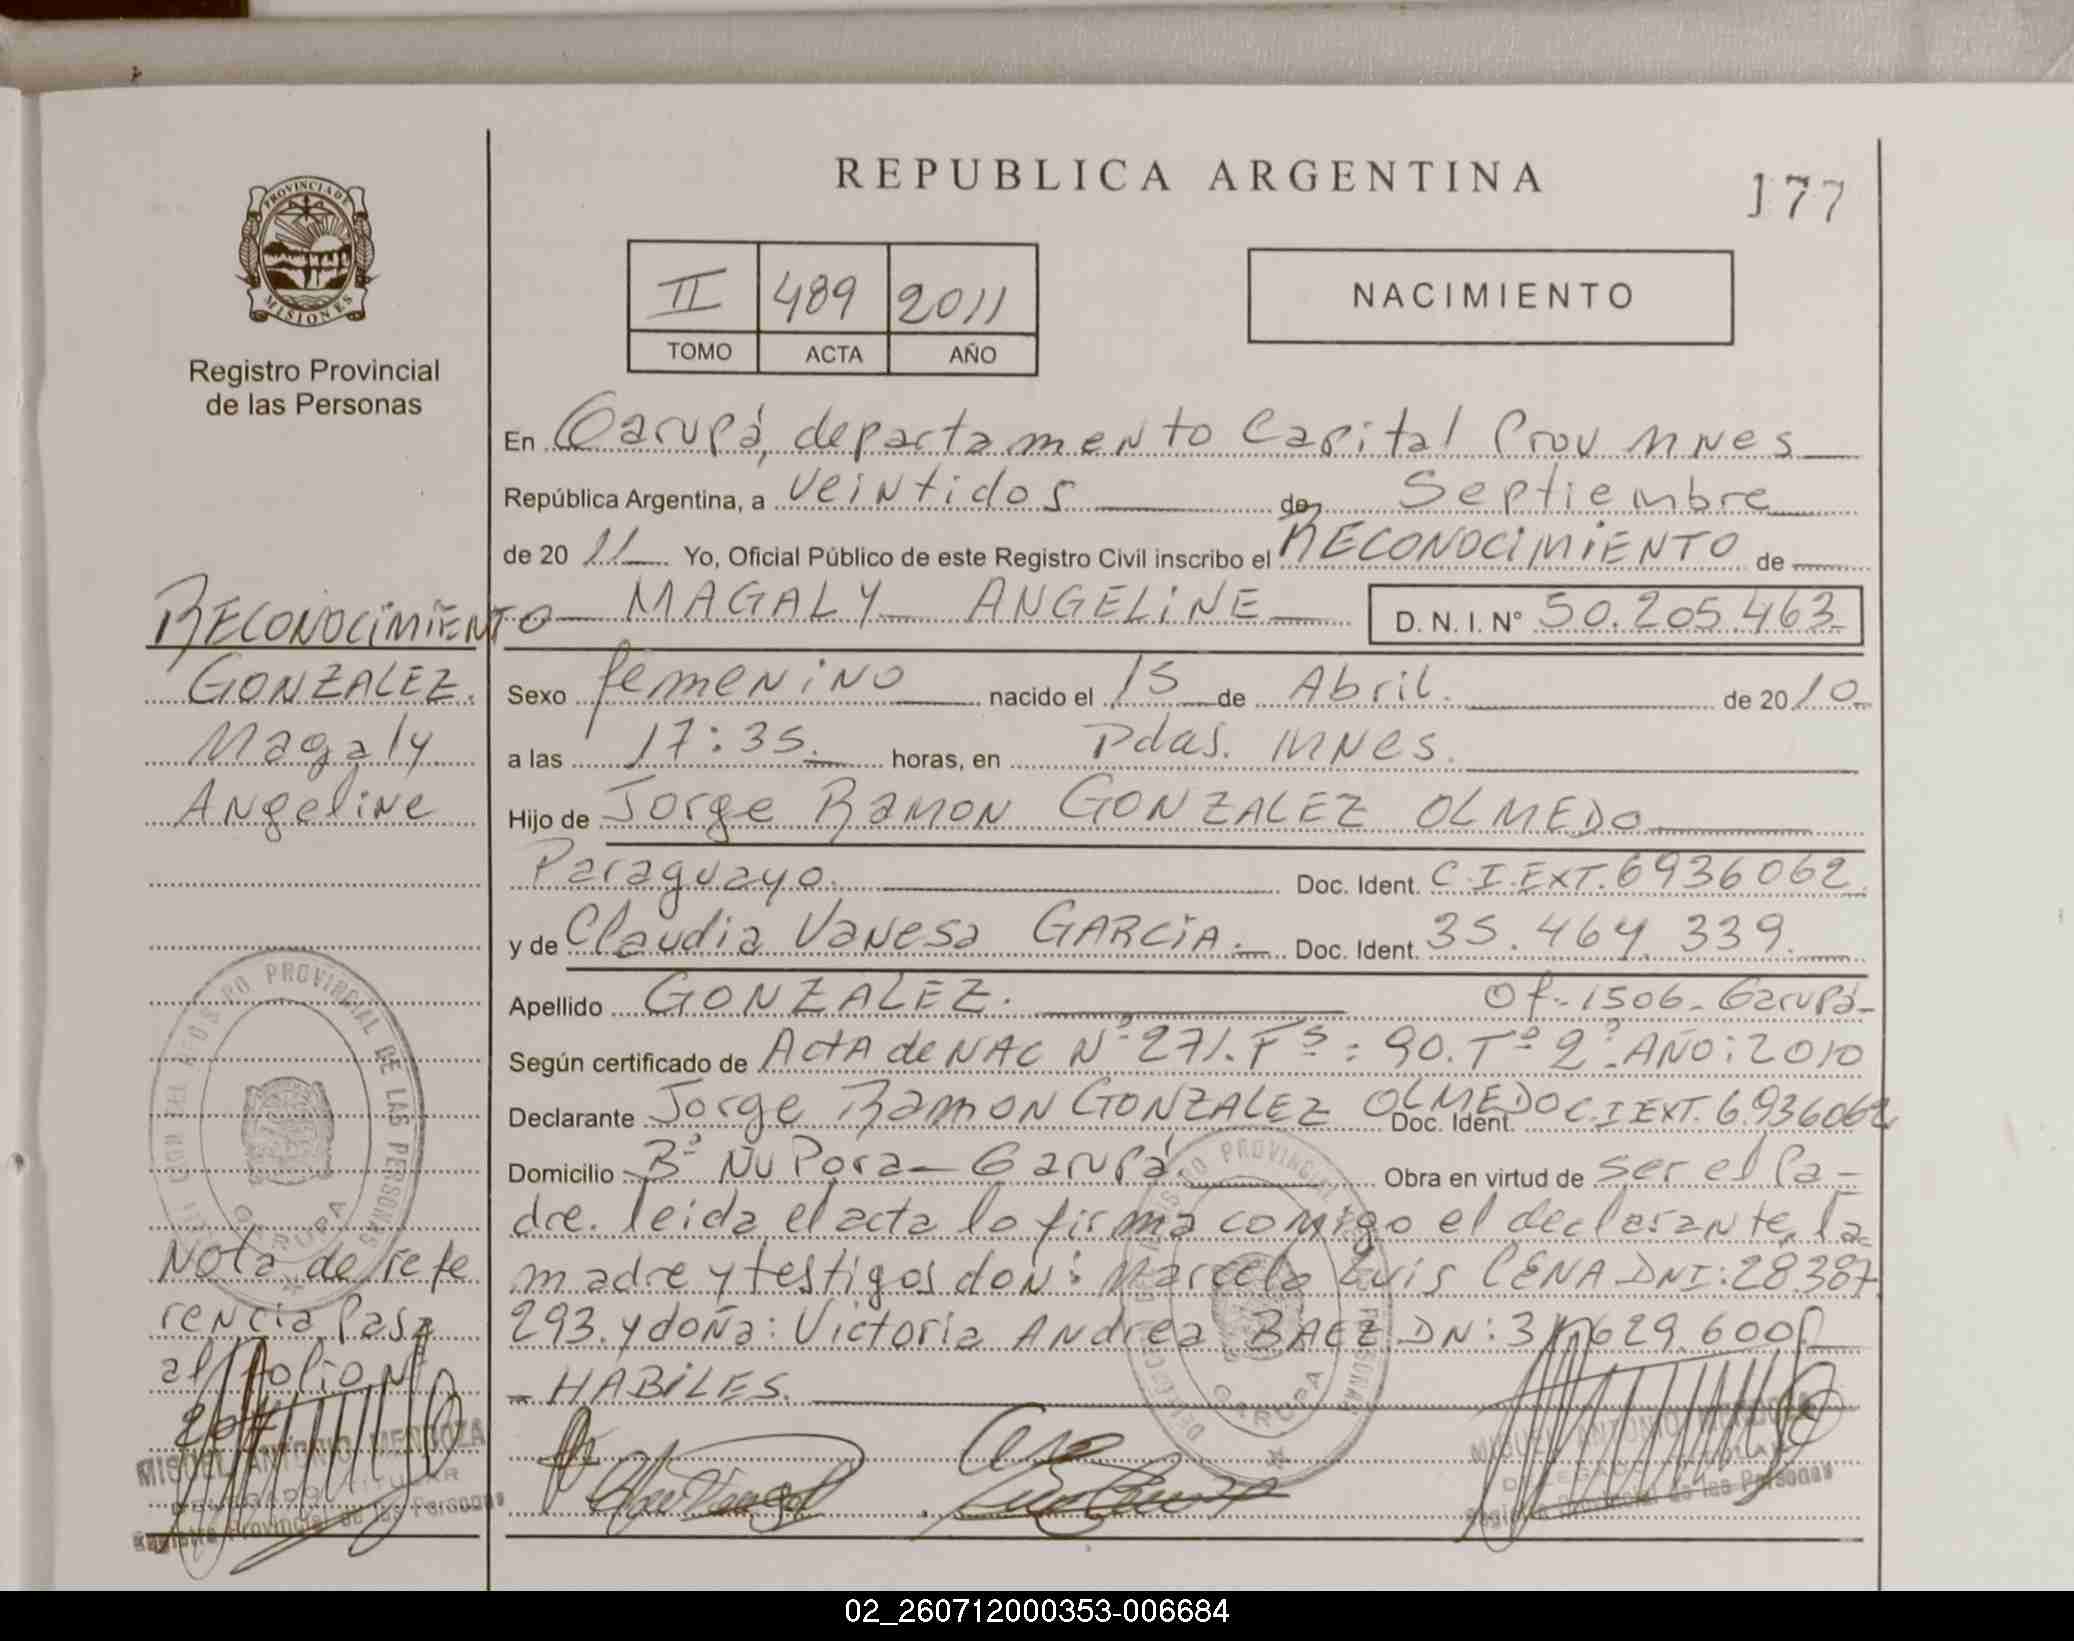 REPUBLICA ARGENTINA
177
PROVINCIA DE MISIONES
Registro Provincial
de las Personas
II 489 2011
TOMO ACTA AÑO
NACIMIENTO
En Garupá, departamento Capital Prov Mnes
República Argentina, a veintidos de Septiembre
de 20 11 Yo, Oficial Público de este Registro Civil inscribo el RECONOCIMIENTO de
MAGALY ANGELINE D. N. I. N° 50.205.463
Sexo femenino nacido el 15 de Abril. de 20 10
a las 17:35. horas, en Pdas. Mnes.
Hijo de Jorge Ramon GONZALEZ OLMEDO
Paraguayo. Doc. Ident. C.I.EXT. 6936062.
y de Claudia Vanesa GARCIA. Doc. Ident. 35.464.339.
Apellido GONZALEZ. Of.-1506-Garupá-
Según certificado de Acta de NAC Nº 271. Fº: 90. Tº 2º. AÑO: 2010
Declarante Jorge Ramon GONZALEZ OLMEDO Doc. Ident. C.I EXT. 6.936062
Domicilio Bº Ñu Pora - Garupá. Obra en virtud de ser el Pa-
dre. leida el acta lo firma comigo el declarante, la
madre y testigos don: Marcelo Luis CENA DNI: 28.387.
293. y doña: Victoria Andrea BAEZ DN: 31.629.600
- HABILES.
RECONOCIMIENTO
GONZALEZ.
Magaly
Angeline
Nota de refe
rencia Pasa
al folio Nº
207
REGISTRO PROVINCIAL DE LAS PERSONAS
GARUPA
MIGUEL ANTONIO MENDOZA
DELEGADO TITULAR
Registro Provincial de las Personas
MIGUEL ANTONIO MENDOZA
DELEGADO TITULAR
Registro Provincial de las Personas
02_260712000353-006684